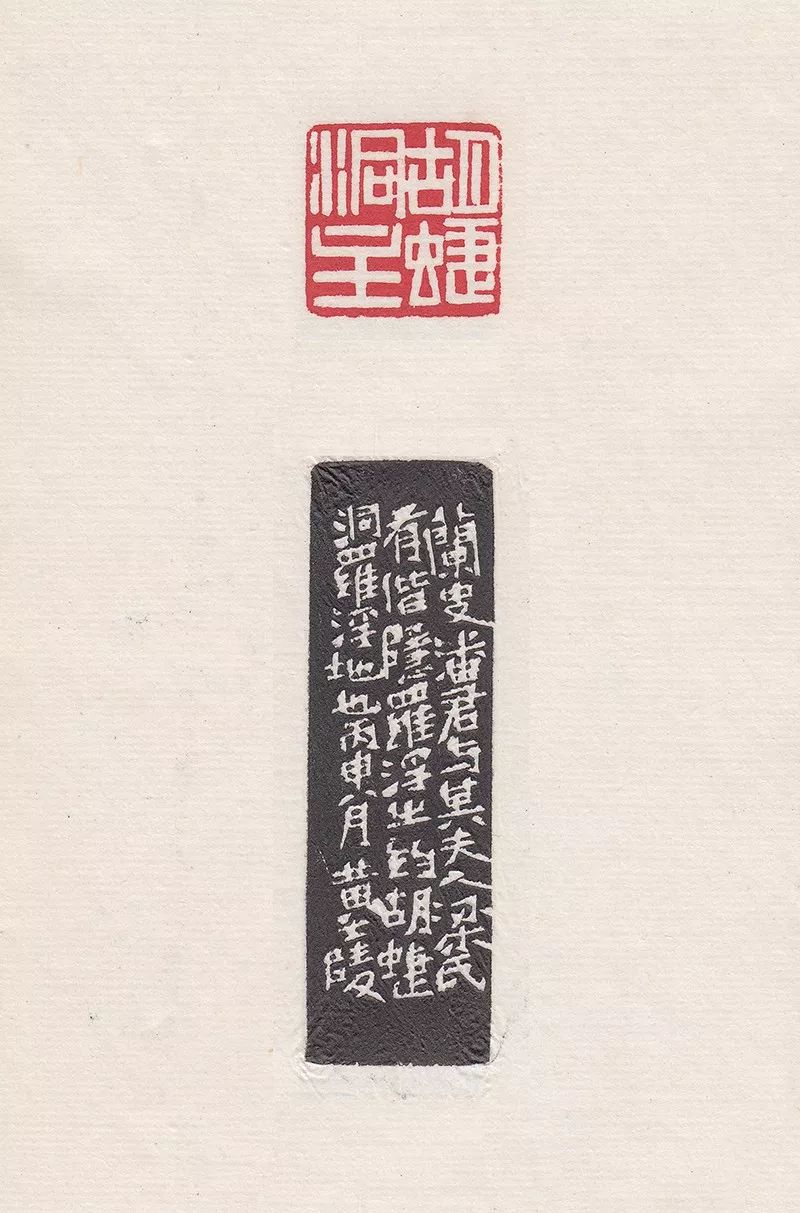 胡蜨
洞主
蘭史潘君与其夫人梁氏
有偕隱羅浮之約胡蜨
洞羅浮地也丙申八月黃士陵